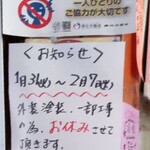 一人ひとりの
ご協力が大切です
〈お知らせ〉
1月31(火)〜2月7(火)
外装塗装、一部工事
の為、お休みさせて
頂きます。